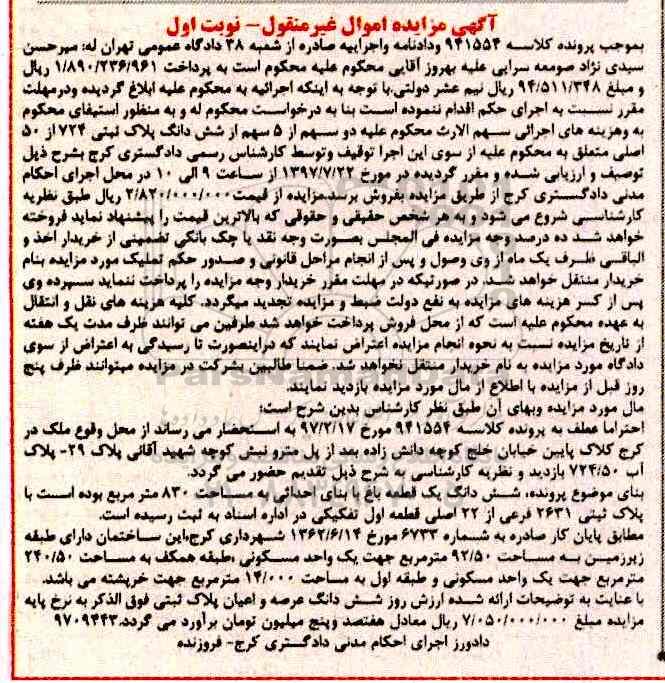 آگهی مزایده اموال غیرمنقول- نوبت اول
بموجب پرونده کلاسه ۹۴۱۵۵۴ ودادنامه واجراییه صادره از شعبه ۳۸ دادگاه عمومی تهران له: میرحسن
سیدی نژاد صومعه سرایی علیه بهروز آقایی محکوم علیه محکوم است به پرداخت ۱/۸۹۰/۲۳۶/۹۶۱ ریال
و مبلغ ۹۴/۵۱۱/۳۴۸ ریال نیم عشر دولتی.با توجه به اینکه اجرائیه به محکوم علیه ابلاغ گردیده ودرمهلت
مقرر نسبت به اجرای حکم اقدام ننموده است بنا به درخواست محکوم له و به منظور استیفای محکوم
به وهزینه های اجرائی سهم الارث محکوم علیه دو سهم از ۵ سهم از شش دانگ پلاک ثبتی ۷۲۴ از ۵۰
اصلی متعلق به محکوم علیه از سوی این اجرا توقیف وتوسط کارشناس رسمی دادگستری کرج بشرح ذیل
توصیف و ارزیابی شده و مقرر گردیده در مورخ ۱۳۹۷/۷/۲۲ از ساعت ۹ الی ۱۰ در محل اجرای احکام
مدنی دادگستری کرج از طریق مزایده بفروش برسد.مزایده از قیمت۲/۸۲۰/۰۰۰/۰۰۰ ریال طبق نظریه
کارشناسی شروع می شود و به هر شخص حقیقی و حقوقی که بالاترین قیمت را پیشنهاد نماید فروخته
خواهد شد ده درصد وجه مزایده فی المجلس بصورت وجه نقد یا چک بانکی تضمینی از خریدار اخذ و
الباقی ظرف یک ماه از وی وصول و پس از انجام مراحل قانونی و صدور حکم تملیک مورد مزایده بنام
خریدار منتقل خواهد شد. در صورتیکه در مهلت مقرر خریدار وجه مزایده را پرداخت ننماید سپرده وی
پس از کسر هزینه های مزایده به نفع دولت ضبط و مزایده تجدید میگردد. کلیه هزینه های نقل و انتقال
به عهده محکوم علیه است که از محل فروش پرداخت خواهد شد طرفین می توانند ظرف مدت یک هفته
از تاریخ مزایده نسبت به نحوه انجام مزایده اعتراض نمایند که دراینصورت تا رسیدگی به اعتراض از سوی
دادگاه مورد مزایده به نام خریدار منتقل نخواهد شد. ضمنا طالبین بشرکت در مزایده میتوانند ظرف پنج
روز قبل از مزایده با اطلاع از مال مورد مزایده بازدید نمایند.
مال مورد مزایده وبهای آن طبق نظر کارشناس بدین شرح است؛
احتراما عطف به پرونده کلاسه ۹۴۱۵۵۴ مورخ ۹۷/۲/۱۷ به استحضار می رساند از محل وقوع ملک در
کرج کلاک پایین خیابان خلج کوچه دانش زاده بعد از پل مترو نبش کوچه شهید آقائی پلاک ۲۹- پلاک
آب ۷۲۴/۵۰ بازدید و نظریه کارشناسی به شرح ذیل تقدیم حضور می گردد.
بنای موضوع پرونده، شش دانگ یک قطعه باغ با بنای احداثی به مساحت ۸۳۰ متر مربع بوده است با
پلاک ثبتی ۲۶۳۱ فرعی از ۲۲ اصلی قطعه اول تفکیکی در اداره اسناد به ثبت رسیده است.
مطابق پایان کار صادره به شماره ۶۷۳۳ مورخ ۱۳۶۲/۶/۱۴ شهرداری کرج،این ساختمان دارای طبقه
زیرزمین به مساحت ۹۲/۵۰ مترمربع جهت یک واحد مسکونی ،طبقه همکف به مساحت ۲۴۰/۵۰
مترمربع جهت یک واحد مسکونی و طبقه اول به مساحت ۱۴/۰۰۰ مترمربع جهت خرپشته می باشد.
با عنایت به توضیحات ارائه شده ارزش روز شش دانگ عرصه و اعیان پلاک ثبتی فوق الذکر به نرخ پایه
مزایده مبلغ ۷/۰۵۰/۰۰۰/۰۰۰ ریال معادل هفتصد وپنج میلیون تومان برآورد می گردد.۹۷۰۹۴۴۳
دادورز اجرای احکام مدنی دادگستری کرج- فروزنده